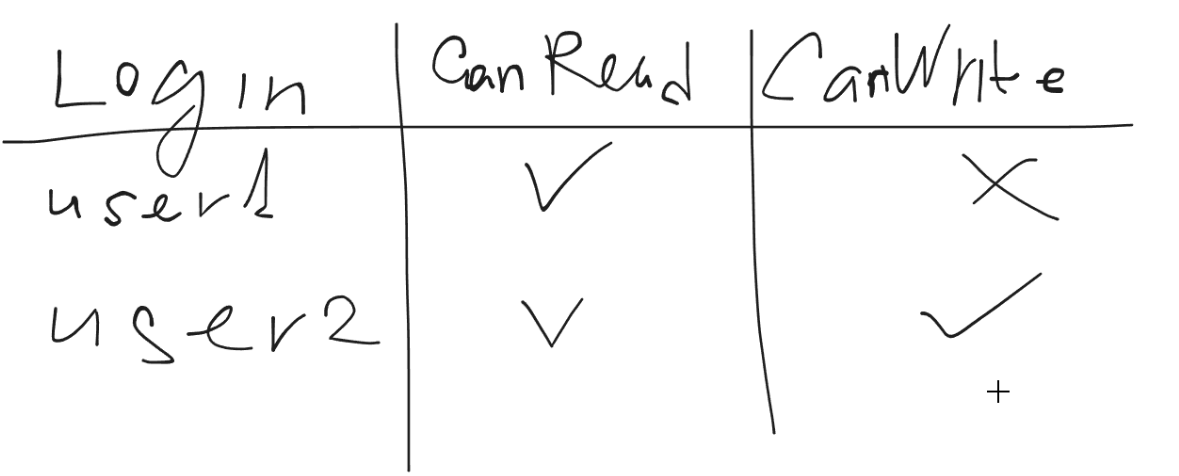 Login CanRead CanWrite
user1 ✓ ✗
user2 ✓ ✓